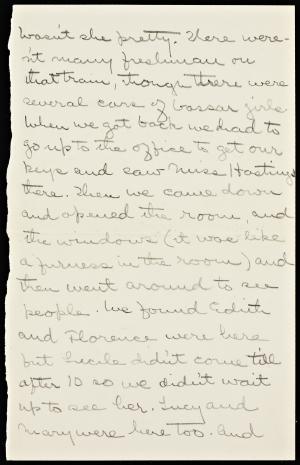 Wasn't she pretty. There were-
n't many freshman on
that train, though there were
several cars of Vassar girls
When we got back we had to
go up to the office to get our
keys and saw Miss Hastings
there. Then we came down
and opened the room, and
the windows (it was like
a furness in the room) and
then went around to see
people. We found Edith
and Florence were here
but Lucile didn't come till
after 10 so we didn't wait
up to see her. Lucy and
Mary were here too. And